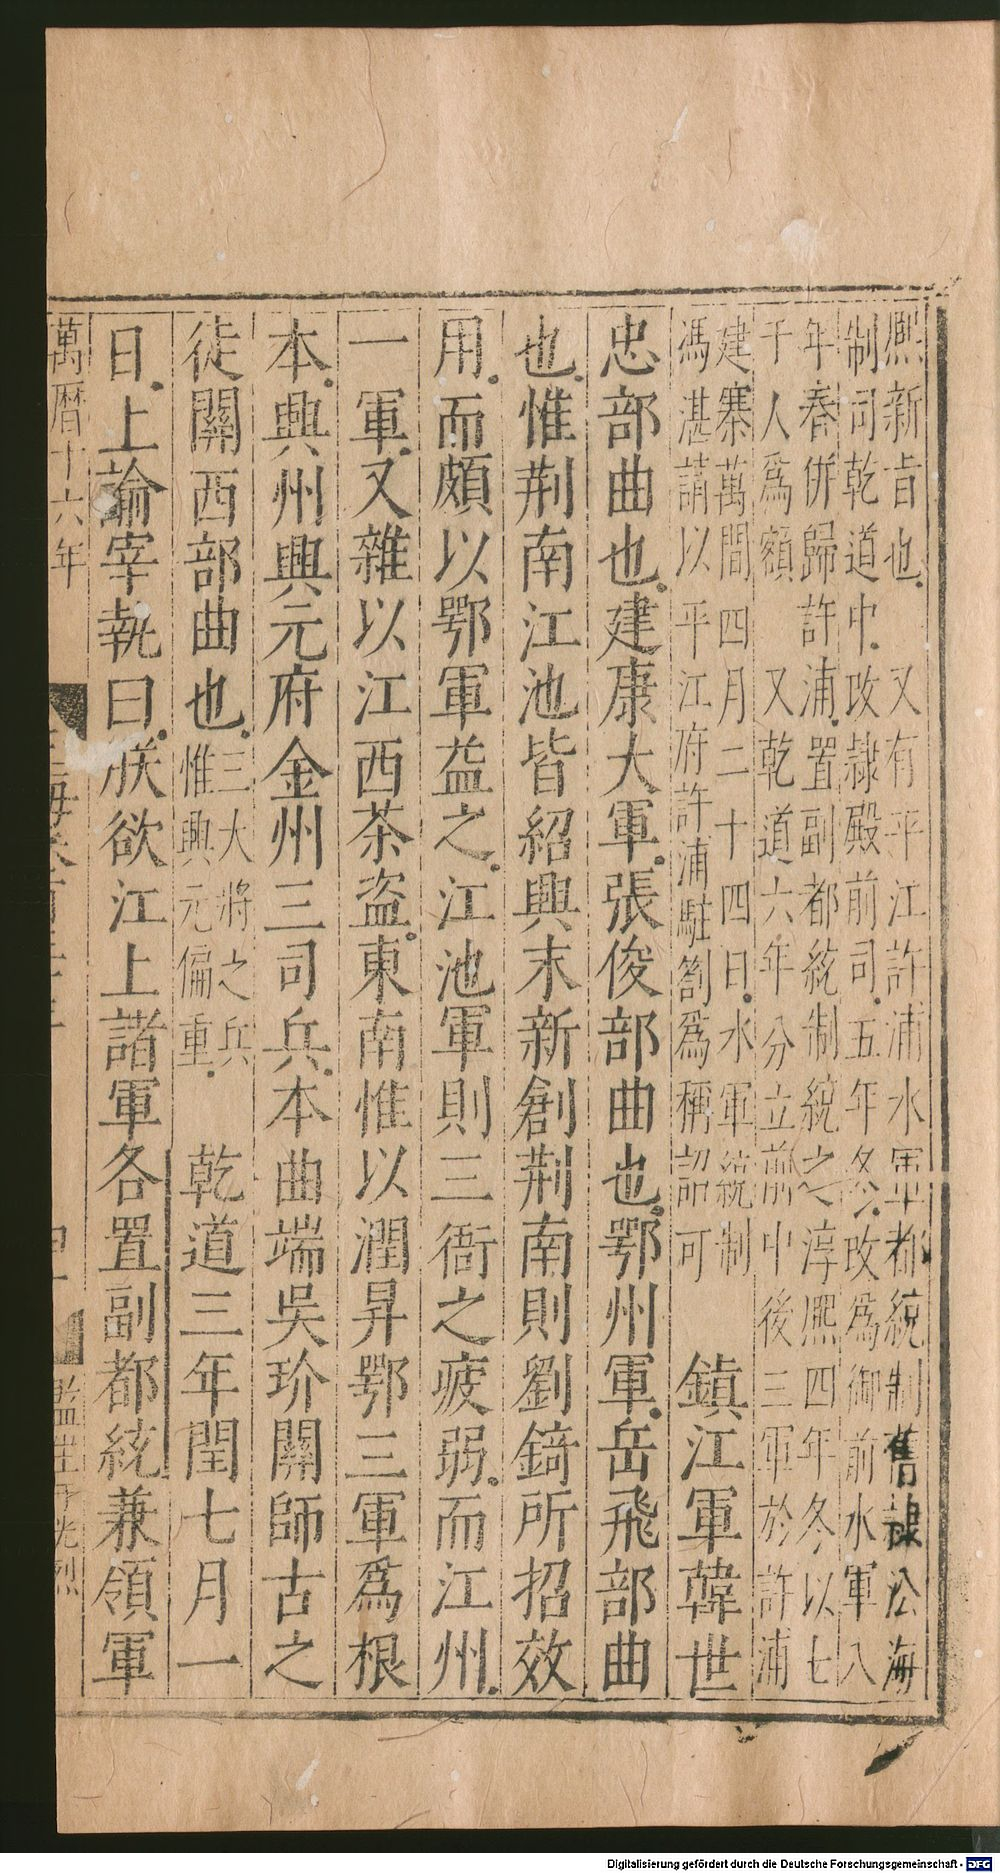 熈新㫖也又有平江許浦水軍都統制舊隷公海
制司乾道中改隷殿前司五年冬改爲御前水軍八
年春併歸許浦置副都統制統之淳熈四年冬以七
千人爲額又乾道六年分立前中後三軍於許浦
建寨萬間四月二十四日水軍統制
馮湛請以平江府許浦駐劄爲稱詔可
鎮江軍韓世
忠部曲也建康大軍張俊部曲也鄂州軍岳飛部曲
也惟荆南江池皆紹興末新創荆南則劉錡所招效
用而頗以鄂軍益之江池軍則三衙之疲弱而江州
一軍又雜以江西茶盗東南惟以潤昇鄂三軍爲根
本興州興元府金州三司兵本曲端吳玠關師古之
徒關西部曲也
三大將之兵
惟興元偏重
乾道三年閏七月一
日上諭宰執曰朕欲江上諸軍各置副都統兼領軍
萬暦十六年
監生
Digitalisierung gefördert durch die Deutsche Forschungsgemeinschaft - DFG